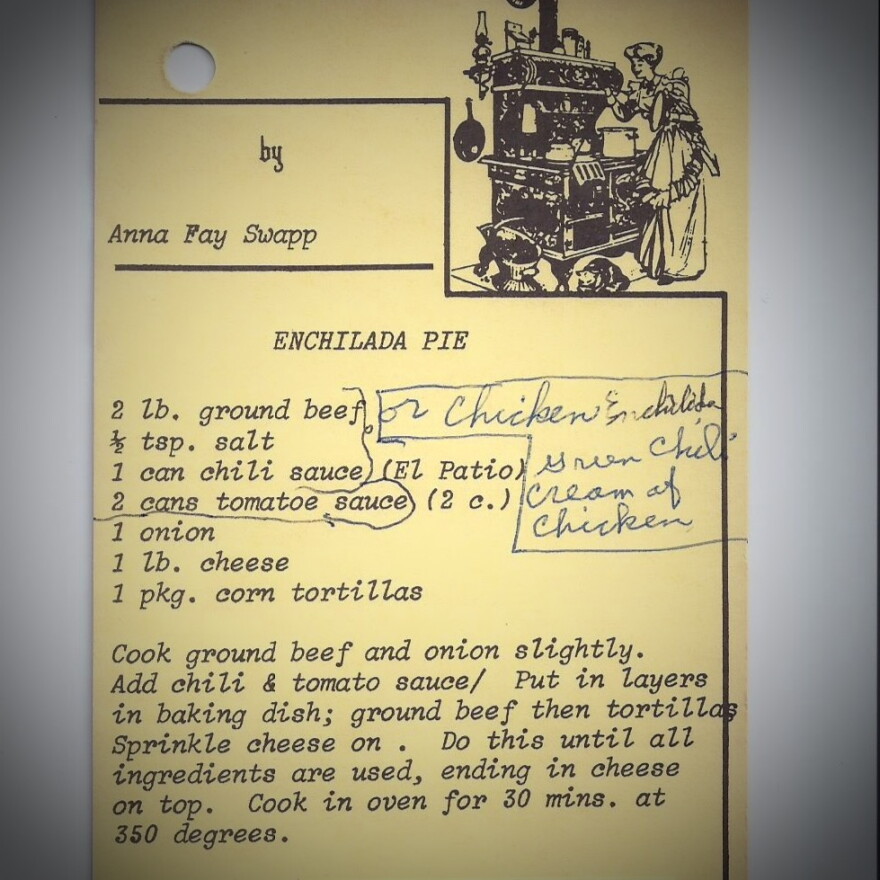 by
Anna Fay Swapp
ENCHILADA PIE
2 lb. ground beef or Chicken Enchilada
½ tsp. salt
1 can chili sauce (El Patio) green Chili
2 cans tomatoe sauce (2 c.) Cream of
Chicken
1 onion
1 lb. cheese
1 pkg. corn tortillas
Cook ground beef and onion slightly.
Add chili & tomato sauce/ Put in layers
in baking dish; ground beef then tortillas
Sprinkle cheese on . Do this until all
ingredients are used, ending in cheese
on top. Cook in oven for 30 mins. at
350 degrees.